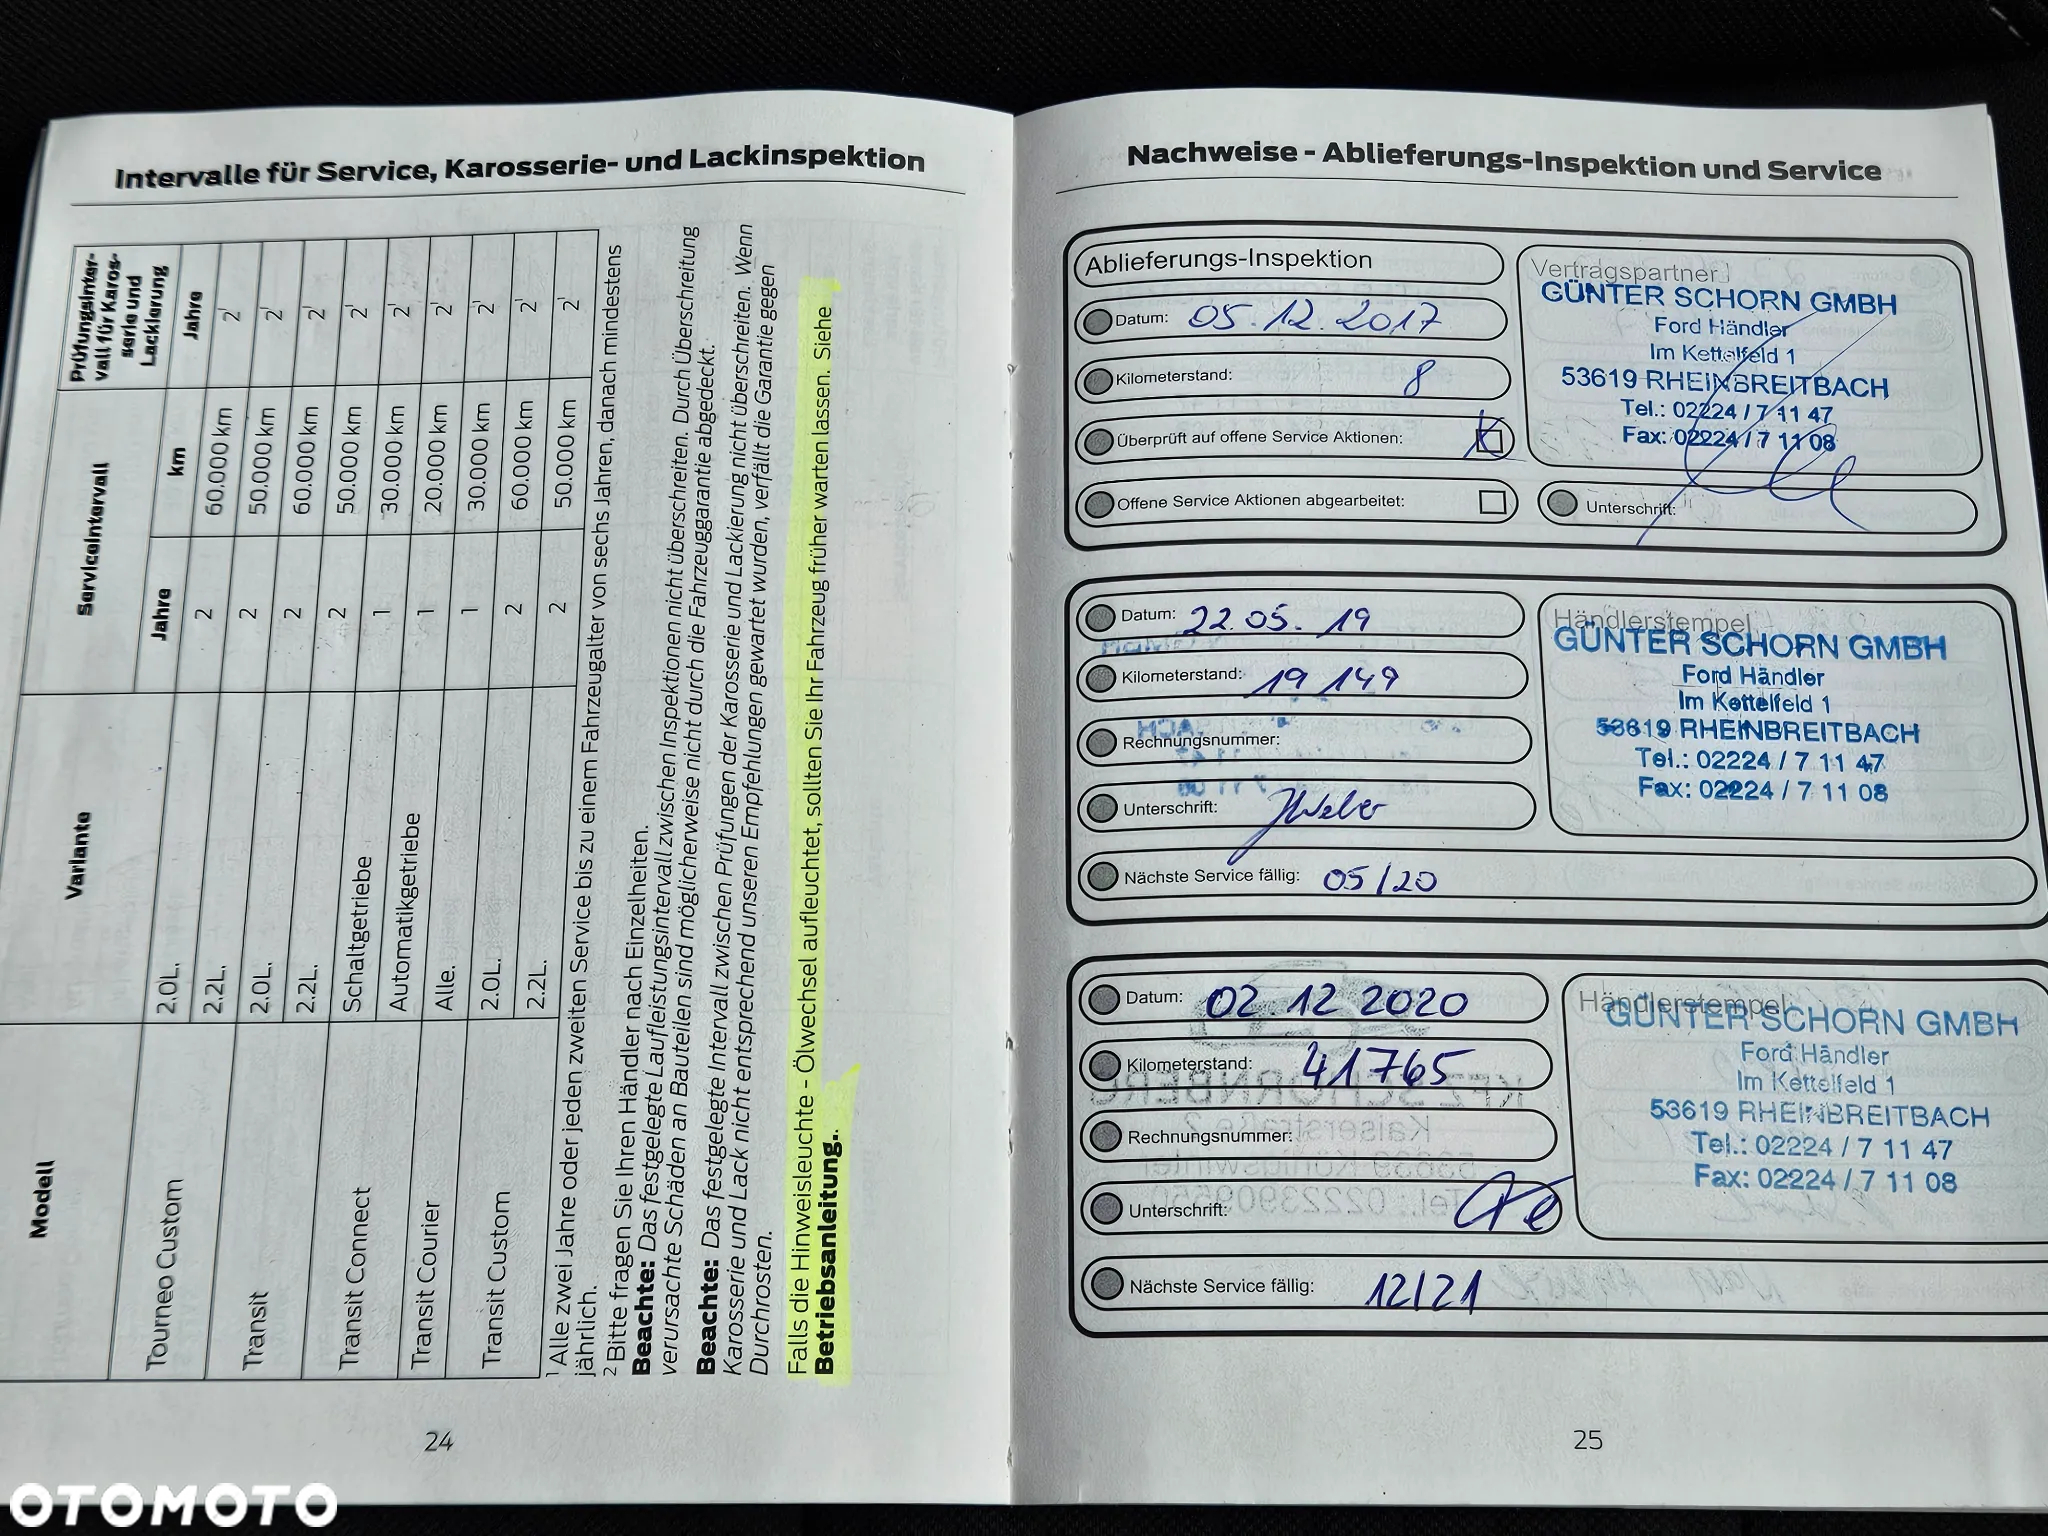 Intervalle für Service, Karosserie- und Lackinspektion
Modell
Variante
Serviceintervall
Prüfungsinter-
vall für Karos-
serie und
Lackierung
Jahre
km
Jahre
Tourneo Custom
2.0L.
2
60.000 km
2¹
2.2L.
2
50.000 km
2¹
Transit
2.0L.
2
60.000 km
2¹
2.2L.
2
50.000 km
2¹
Transit Connect
Schaltgetriebe
1
30.000 km
2¹
Automatikgetriebe
1
20.000 km
2¹
Transit Courier
Alle.
1
30.000 km
2¹
Transit Custom
2.0L.
2
60.000 km
2¹
2.2L.
2
50.000 km
2¹
¹ Alle zwei Jahre oder jeden zweiten Service bis zu einem Fahrzeugalter von sechs Jahren, danach mindestens
jährlich.
² Bitte fragen Sie Ihren Händler nach Einzelheiten.
Beachte: Das festgelegte Laufleistungsintervall zwischen Inspektionen nicht überschreiten. Durch Überschreitung
verursachte Schäden an Bauteilen sind möglicherweise nicht durch die Fahrzeuggarantie abgedeckt.
Beachte: Das festgelegte Intervall zwischen Prüfungen der Karosserie und Lackierung nicht überschreiten. Wenn
Karosserie und Lack nicht entsprechend unseren Empfehlungen gewartet wurden, verfällt die Garantie gegen
Durchrosten.
Falls die Hinweisleuchte - Ölwechsel aufleuchtet, sollten Sie Ihr Fahrzeug früher warten lassen. Siehe
Betriebsanleitung.
24
Nachweise - Ablieferungs-Inspektion und Service
Ablieferungs-Inspektion
Datum: 05.12.2017
Kilometerstand: 8
Überprüft auf offene Service Aktionen:
Offene Service Aktionen abgearbeitet:
Vertragspartner
GÜNTER SCHORN GMBH
Ford Händler
Im Kettelfeld 1
53619 RHEINBREITBACH
Tel.: 02224 / 7 11 47
Fax: 02224 / 7 11 08
Unterschrift:
Datum: 22.05.19
Kilometerstand: 19 149
Rechnungsnummer:
Unterschrift:
Nächste Service fällig: 05/20
Händlerstempel
GÜNTER SCHORN GMBH
Ford Händler
Im Kettelfeld 1
53619 RHEINBREITBACH
Tel.: 02224 / 7 11 47
Fax: 02224 / 7 11 08
Datum: 02.12 2020
Kilometerstand: 41765
Rechnungsnummer:
Unterschrift:
Nächste Service fällig: 12/21
Händlerstempel
GÜNTER SCHORN GMBH
Ford Händler
Im Kettelfeld 1
53619 RHEINBREITBACH
Tel.: 02224 / 7 11 47
Fax: 02224 / 7 11 08
25
OTOMOTO